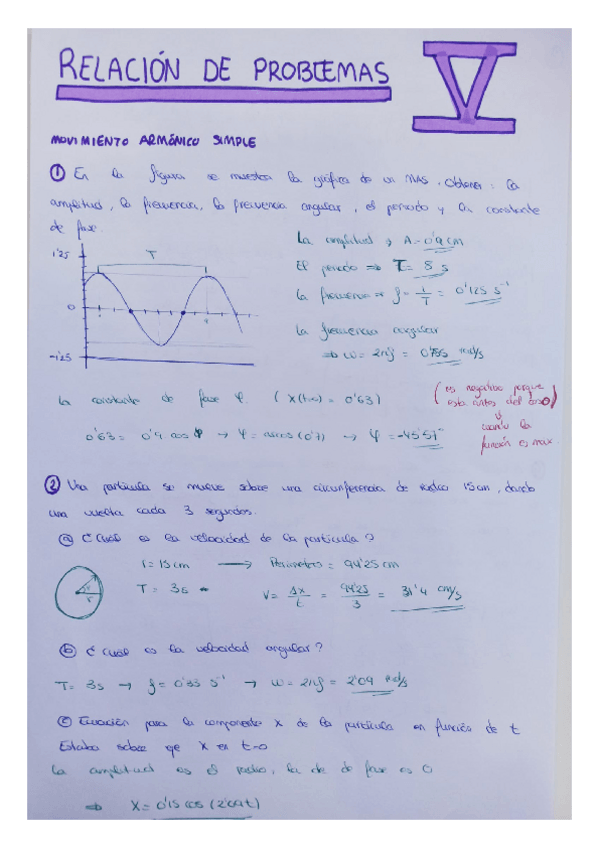 RELACIÓN DE PROBLEMAS V
MOVIMIENTO ARMÓNICO SIMPLE
① En la figura se muestra la gráfica de un MAS. Obtener: la
amplitud, la frecuencia, la frecuencia angular, el periodo y la constante
de fase.
La amplitud, A = 0'9 cm
El periodo ⇒ T = 8 s
La frecuencia ⇒ f = 1/T = 0'125 s⁻¹
La frecuencia angular
⇒ ω = 2πf = 0'785 rad/s
1'25
T
0
-1'25
La constante de fase φ. (X(t=0) = 0'63)
0'63 = 0'9 cos φ → φ = arcos (0'7) → φ = -45'57°
(es negativo porque
esta antes del cos0)
cuando la
función es max.
② Una partícula se mueve sobre una circunferencia de radio 15 cm, dando
una vuelta cada 3 segundos.
ⓐ ¿Cuál es la velocidad de la partícula?
r = 15 cm → Perímetro = 94'25 cm
T = 3s
V = Δx/t = 94'25/3 = 31'4 cm/s
r
ⓑ ¿Cuál es la velocidad angular?
T = 3s → f = 0'33 s⁻¹ → ω = 2πf = 2'09 rad/s
ⓒ Ecuación para la componente X de la partícula en función de t
Estaba sobre eje X en t=0
La amplitud es el radio, la cte de fase es 0
⇒ X = 0'15 cos (2'09t)